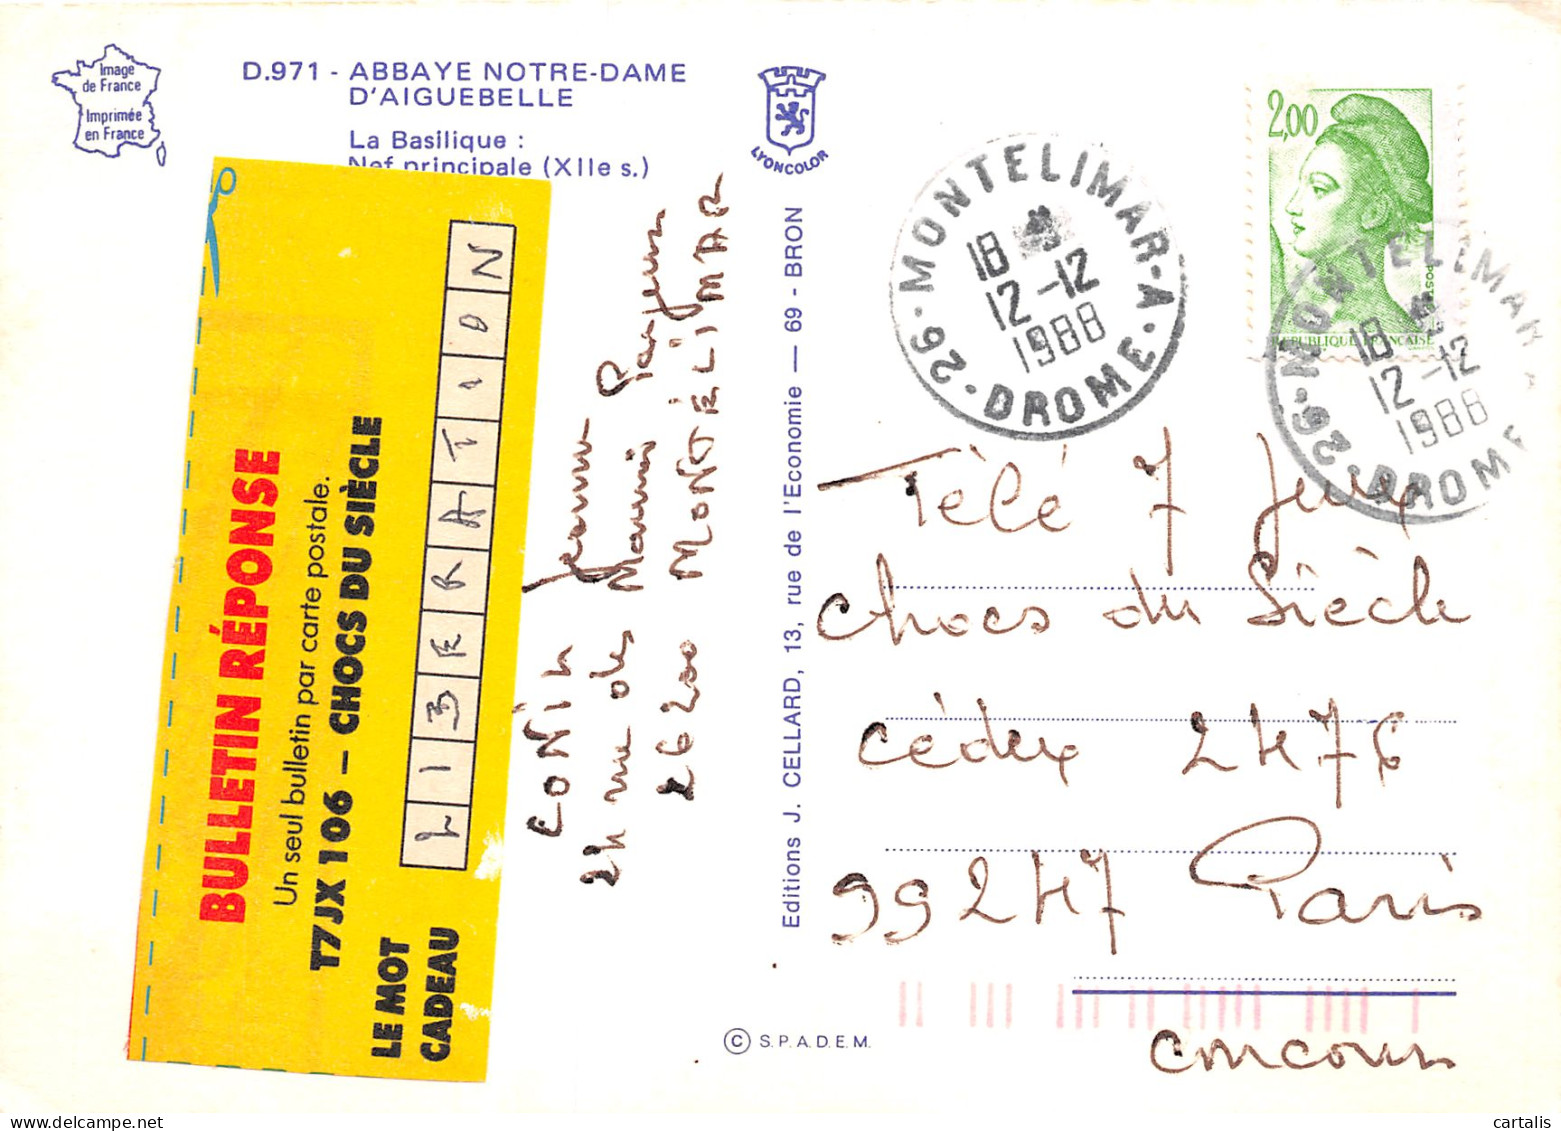 Image
de France
Imprimée
en France
D.971 - ABBAYE NOTRE-DAME
D'AIGUEBELLE
La Basilique :
Nef principale (XIIe s.)
LYONCOLOR
2,00
REPUBLIQUE FRANÇAISE
26 · MONTELIMAR - A · DROME ·
18
12 -12
1988
26 · MONTELIMAR
DROME
18
12 -12
1988
BULLETIN RÉPONSE
Un seul bulletin par carte postale.
T7JX 106 – CHOCS DU SIÈCLE
LE MOT
CADEAU
LIBERATION
26200 MONTÉLIMAR
Editions J. CELLARD, 13, rue de l'Economie — 69 - BRON
Télé 7 Jeux
Chocs du Siècle
Cédex 2476
99247 Paris
concours
© S.P.A.D.E.M.
cartalis